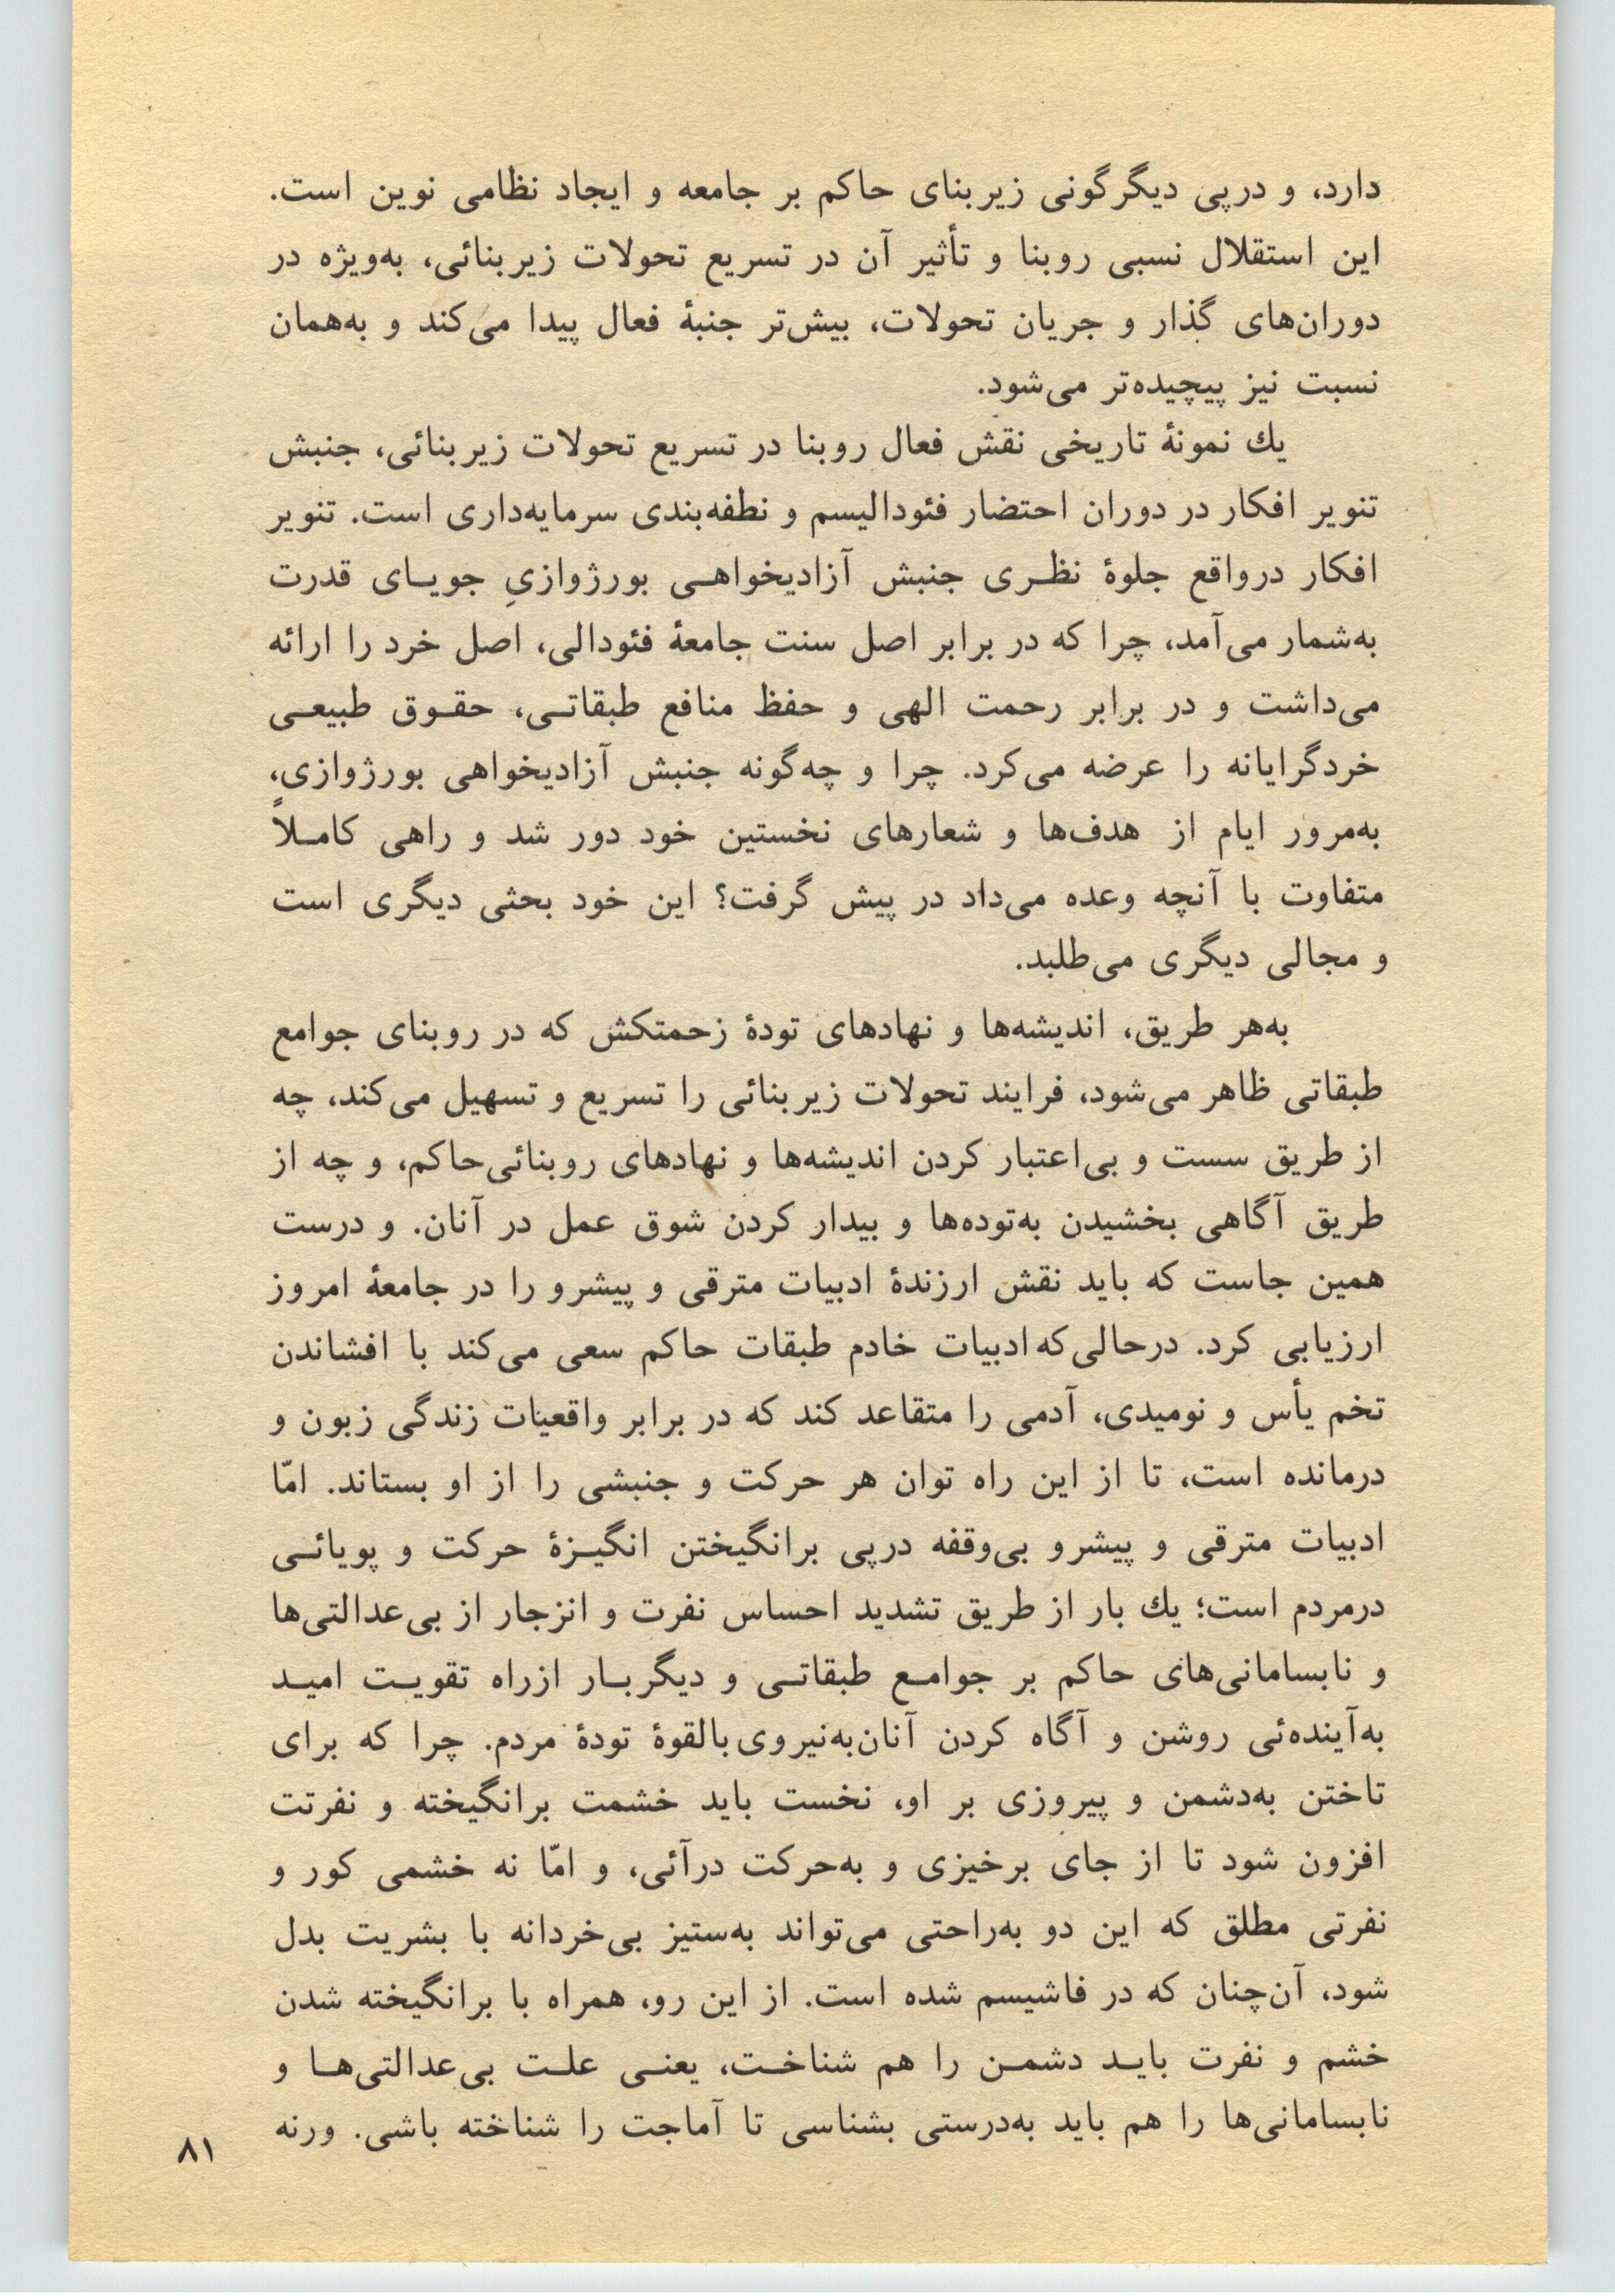 دارد، و درپی دیگرگونی زیربنای حاکم بر جامعه و ایجاد نظامی نوین است.
این استقلال نسبی روبنا و تأثیر آن در تسریع تحولات زیربنائی، به‌ویژه در
دوران‌های گذار و جریان تحولات، بیش‌تر جنبهٔ فعال پیدا می‌کند و به‌همان
نسبت نیز پیچیده‌تر می‌شود.
یك نمونهٔ تاریخی نقش فعال روبنا در تسریع تحولات زیربنائی، جنبش
تنویر افکار در دوران احتضار فئودالیسم و نطفه‌بندی سرمایه‌داری است. تنویر
افکار درواقع جلوهٔ نظـری جنبش آزادیخواهـی بورژوازیِ جویـای قدرت
به‌شمار می‌آمد، چرا که در برابر اصل سنت جامعهٔ فئودالی، اصل خرد را ارائه
می‌داشت و در برابر رحمت الهی و حفظ منافع طبقاتـی، حقـوق طبیعـی
خردگرایانه را عرضه می‌کرد. چرا و چه‌گونه جنبش آزادیخواهی بورژوازی،
به‌مرور ایام از هدف‌ها و شعارهای نخستین خود دور شد و راهی کامـلاً
متفاوت با آنچه وعده می‌داد در پیش گرفت؟ این خود بحثی دیگری است
و مجالی دیگری می‌طلبد.
به‌هر طریق، اندیشه‌ها و نهادهای تودهٔ زحمتکش که در روبنای جوامع
طبقاتی ظاهر می‌شود، فرایند تحولات زیربنائی را تسریع و تسهیل می‌کند، چه
از طریق سست و بی‌اعتبار کردن اندیشه‌ها و نهادهای روبنائی‌حاکم، و چه از
طریق آگاهی بخشیدن به‌توده‌ها و بیدار کردن شوق عمل در آنان. و درست
همین جاست که باید نقش ارزندهٔ ادبیات مترقی و پیشرو را در جامعهٔ امروز
ارزیابی کرد. درحالی‌که ادبیات خادم طبقات حاکم سعی می‌کند با افشاندن
تخم یأس و نومیدی، آدمی را متقاعد کند که در برابر واقعیات زندگی زبون و
درمانده است، تا از این راه توان هر حرکت و جنبشی را از او بستاند. امّا
ادبیات مترقی و پیشرو بی‌وقفه درپی برانگیختن انگیـزهٔ حرکت و پویائـی
درمردم است؛ یك بار از طریق تشدید احساس نفرت و انزجار از بی‌عدالتی‌ها
و نابسامانی‌های حاکم بر جوامـع طبقاتـی و دیگربـار ازراه تقویـت امیـد
به‌آینده‌ئی روشن و آگاه کردن آنان‌به‌نیروی‌بالقوهٔ تودهٔ مردم. چرا که برای
تاختن به‌دشمن و پیروزی بر او، نخست باید خشمت برانگیخته و نفرتت
افزون شود تا از جای برخیزی و به‌حرکت درآئی، و امّا نه خشمی کور و
نفرتی مطلق که این دو به‌راحتی می‌تواند به‌ستیز بی‌خردانه با بشریت بدل
شود، آن‌چنان که در فاشیسم شده است. از این رو، همراه با برانگیخته شدن
خشم و نفرت بایـد دشمـن را هم شناخـت، یعنـی علـت بی‌عدالتی‌هـا و
نابسامانی‌ها را هم باید به‌درستی بشناسی تا آماجت را شناخته باشی. ورنه
۸۱